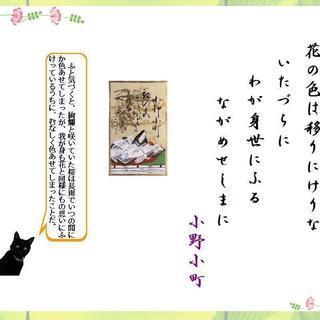 花の色は移りにけりな
いたづらに
わが身世にふる
ながめせしまに
小野小町
ふと気づくと、絢爛と咲いていた桜は長雨でいつの間に
か色あせてしまったが、我が身も花と同様にもの思いにふ
けっているうちに、むなしく色あせてしまったことだ。